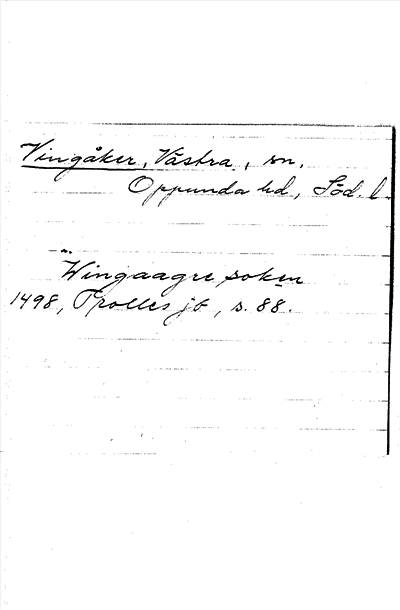 Vingåker, Västra, sn.
Oppunda hd, Söd. l.
Wingaagre soken
1498, Trolles jb, s. 88.